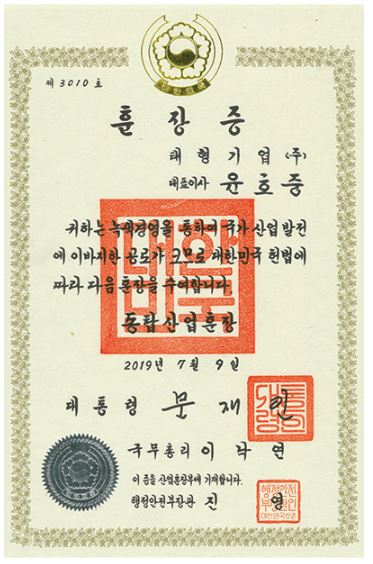 대한민국
제 3010 호
훈장증
태형기업(주)
대표이사 윤호중
귀하는 녹색경영을 통하여 국가 산업 발전
에 이바지한 공로가 크므로 대한민국 헌법에
따라 다음 훈장을 수여합니다.
동탑산업훈장
2019년 7월 9일
대통령 문재인
국무총리 이낙연
이 증을 산업훈장부에 기재합니다.
행정안전부장관 진 영